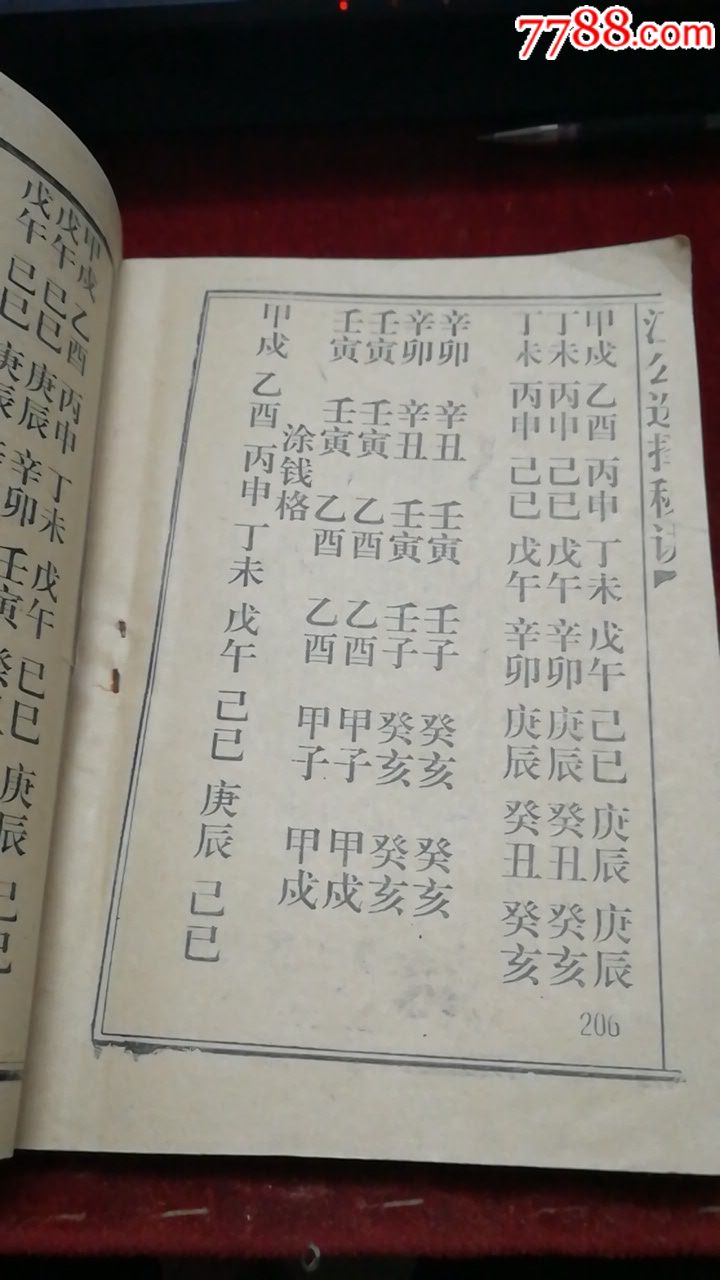 7788.com
江公选择秘诀
甲戌 乙酉 丙申 丁未 戊午 己巳 庚辰 庚辰
丁未 丙申 己巳 戊午 辛卯 庚辰 癸丑 癸亥
丁未 丙申 己巳 戊午 辛卯 庚辰 癸丑 癸亥
辛卯 辛丑 壬寅 壬子 癸亥 癸亥
辛卯 辛丑 壬寅 壬子 癸亥 癸亥
壬寅 壬寅 乙酉 乙酉 甲子 甲戌
壬寅 壬寅 乙酉 乙酉 甲子 甲戌
涂钱格
甲戌 乙酉 丙申 丁未 戊午 己巳 庚辰 己巳
206
甲戌 乙酉 丙申 丁未 戊午 己巳 庚辰 己巳
戊午 己巳 庚辰 辛卯 壬寅
戊午 己巳 庚辰